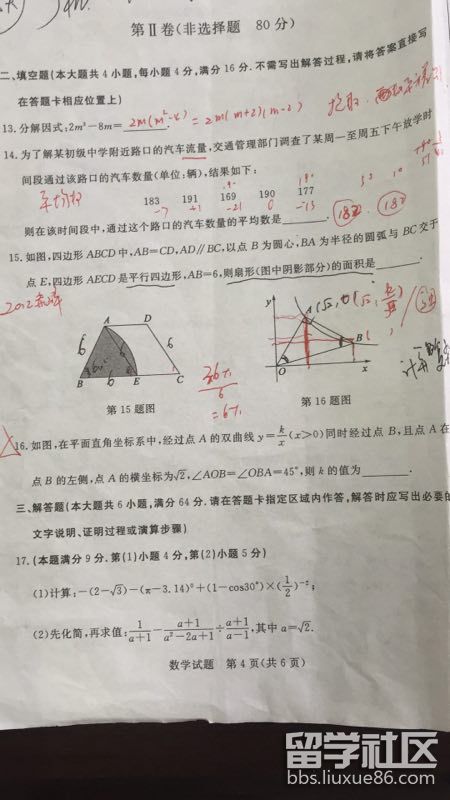 第Ⅱ卷(非选择题 80分)
二、填空题(本大题共4小题,每小题4分,满分16分.不需写出解答过程,请将答案直接写
在答题卡相应位置上)
13.分解因式:2m³-8m= 2m(m²-4) = 2m(m+2)(m-2)
14.为了解某初级中学附近路口的汽车流量,交通管理部门调查了某周一至周五下午放学时
间段通过该路口的汽车数量(单位:辆),结果如下:
183 191 169 190 177
-7 +1 -21 0 -13
则在该时间段中,通过这个路口的汽车数量的平均数是______. 182 182
15.如图,四边形ABCD中,AB=CD,AD∥BC,以点B为圆心,BA为半径的圆弧与BC交于
点E,四边形AECD是平行四边形,AB=6,则扇形(图中阴影部分)的面积是______.
A D
6 6 6
60°
B 6 E C
36π/6
=6π
y
A
B
O x
第15题图 第16题图
16.如图,在平面直角坐标系中,经过点A的双曲线y=k/x(x>0)同时经过点B,且点A在
点B的左侧,点A的横坐标为√2,∠AOB=∠OBA=45°,则k的值为______.
三、解答题(本大题共6小题,满分64分.请在答题卡指定区域内作答,解答时应写出必要的
文字说明、证明过程或演算步骤)
17.(本题满分9分.第(1)小题4分,第(2)小题5分)
(1)计算:-(2-√3)-(π-3.14)⁰+(1-cos30°)×(1/2)⁻²;
(2)先化简,再求值:1/(a+1)-(a+1)/(a²-2a+1)÷(a+1)/(a-1),其中a=√2.
数学试题 第4页(共6页)
留学社区
bbs.liuxue86.com